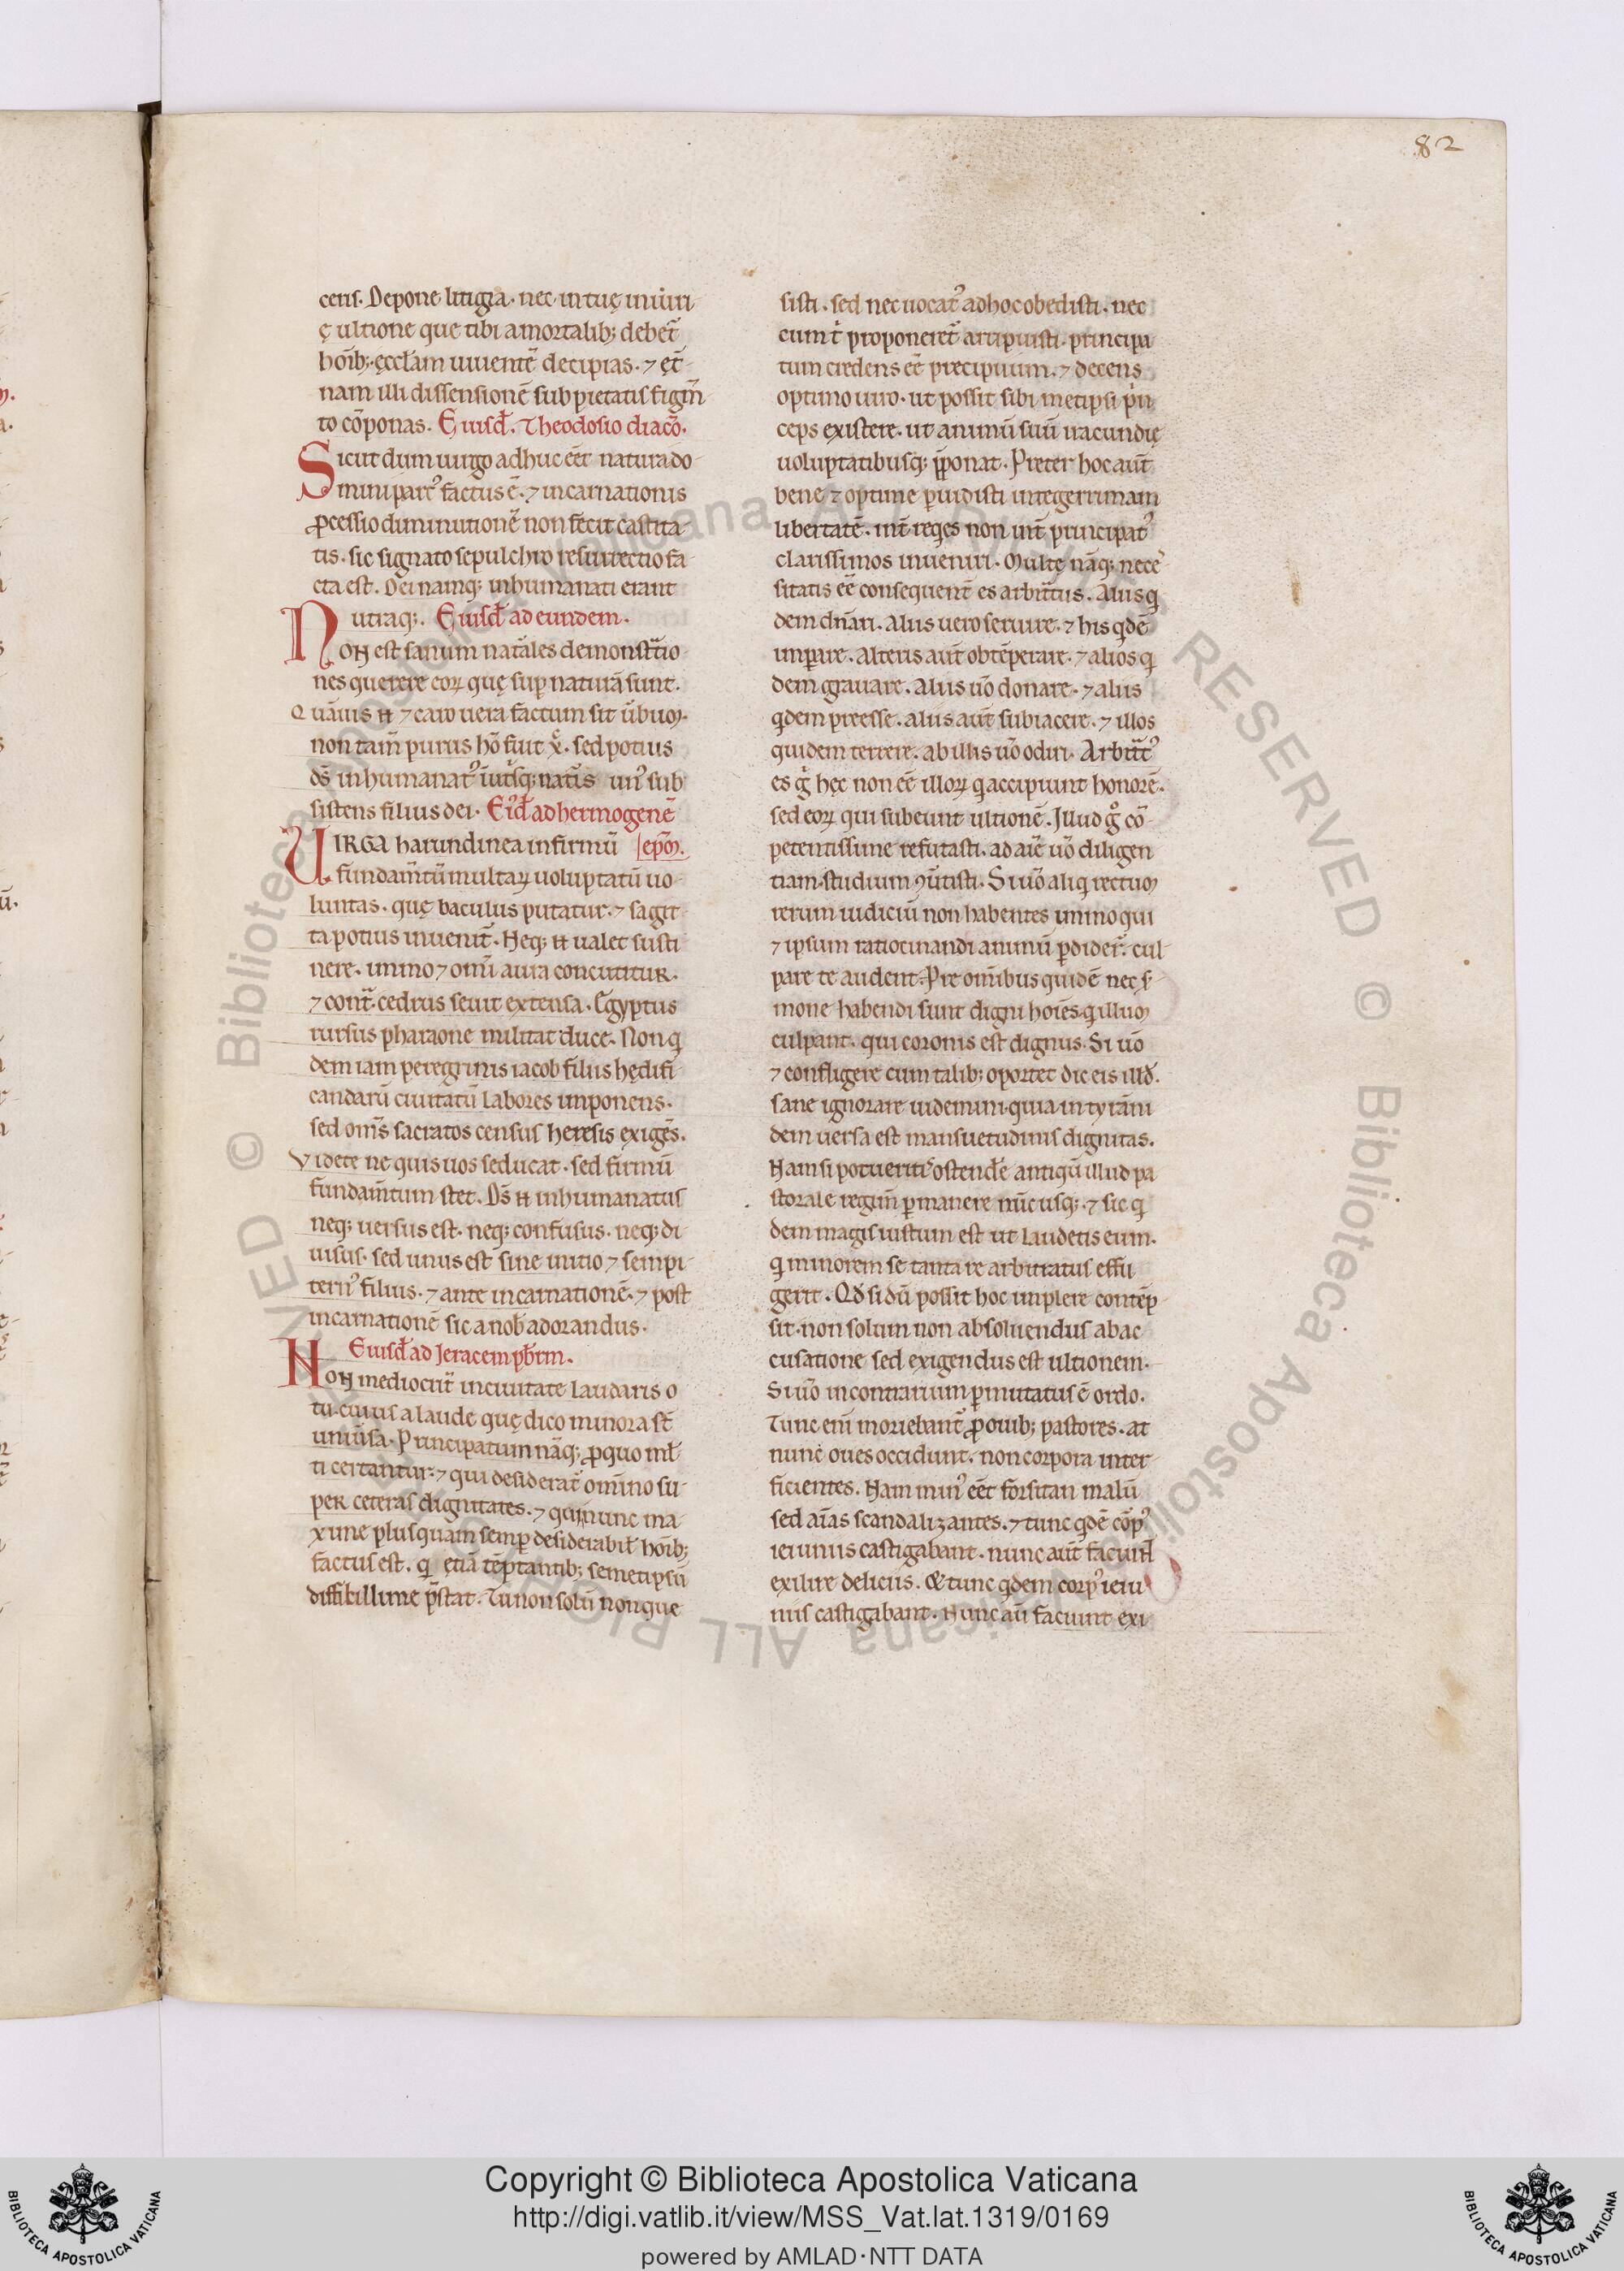 82
ceris. Depone litigia. nec in tuę iniuri
ę ultione que tibi a mortalib; debet̄
hoīb;. ęccl̄am uiuentē decipias. ⁊ ęt̄
nam illi dissensionē sub pietatis figm̄
to cōponas. Eiusd̄. Theodosio diacō.
Sicut dum uirgo adhuc eēt natura do
mini partꝰ factus ē. ⁊ incarnationis
ꝓcessio diminutionē non fecit castita
tis. sic signato sepulchro resurrectio fa
cta est. Dei namq; inhumanati erant
utraq;. Eiusd̄ ad eundem.
Non est sanum nat̄ales demonstr̄atio
nes querere eoꝝ quę suꝑ naturā sunt.
Quāuis n̄ ⁊ caro uera factum sit u̅bum.
non tam̄ purus hō fuit xp̄c. sed potius
ds̄ inhumanatꝰ in ut̄sq; nat̄is unꝰ sub
sistens filius dei. Eiꝰd̄ ad hermogenē
VIRGA harundinea infirmū ep̄m.
fundam̄tū multaꝝ uoluptatū uo
luntas. quę baculus putatur. ⁊ sagit
ta potius inuenit̄. Neq; n̄ ualet susti
nere. immo ⁊ omī aura concutitur.
⁊ cont̄. cedrus seuit extensa. Egyptus
rursus pharaone militat duce. Non q
dem iam peregrinis iacob filiis hędifi
candarū ciuitatū labores imponens.
sed om̄s sacratos census heresis exigēs.
Videte ne quis uos seducat. sed firmū
fundam̄tum stet. Ds̄ n̄ inhumanatus
neq; uersus est. neq; confusus. neq; di
uisus. sed unus est sine initio ⁊ sempi
ternꝰ filius. ⁊ ante incarnationē. ⁊ post
incarnationē sic a nob̄ adorandus.
Eiusd̄ ad Jeracem pb̄rm.
Non mediocrit̄ in ciuitate laudaris o
tu cuius a laude quę dico minora st̄
uniu̅sa. Principatum nāq; ꝓ quo ml̄
ti certantur: ⁊ qui desiderat̄ omīno su
per ceteras dignitates. ⁊ qui nunc ma
xime plusquam semꝑ desiderabil̄ hoīb;
factus est. q etiā tēptantib; semetipsū
difficillime p̄stat. Tu non solū non que
sisti. sed nec uocatꝰ ad hoc obedisti. nec
cum t̄ proponeret̄ arripuisti. principa
tum credens eē precipuum. ⁊ decens
optimo uiro. ut possit sibi metipsi pri
ceps existere. ut animū suū iracundię
uoluptatibusq; p̄ponat. Preter hoc aut̄
bene ⁊ optime ꝑuidisti integerrimam
libertatē. int̄ reges non int̄ principatꝰ
clarissimos inueniri. Multę nāq; nece
sitatis eē consequent̄ es arbitr̄tus. Aliis q
dem dn̄ari. aliis uero seruire. ⁊ his qdē
imꝑare. alteris aut̄ obtēperare. ⁊ alios q
dem grauare. aliis u̅o donare. ⁊ aliis
qdem preesse. aliis aut̄ subiacere. ⁊ illos
quidem terrere. ab illis u̅o odiri. Arbitr̄tꝰ
es g̊ hęc non eē illoꝝ q accipiunt honorē.
sed eoꝝ qui subeunt ultionē. Jllud g̊ cō
petentissime refutasti. ad aīe u̅o diligen
tiam. studium ꝯu̅tisti. Si u̅o aliq rectum
rerum iudiciū non habentes immo qui
⁊ ipsum ratiocinandi animū ꝑdider̄. cul
pare te audent. Pre omībus quidē nec s̄
mone habendi sunt digni hoīes q illum
culpant. qui coronis est dignus. Si u̅o
⁊ confligere cum talib; oportet dic eis illd̄.
sane ignorare uidemini. quia in tyrān
dem uersa est mansuetudinis dignitas.
Nam si potueritis ostend̄e antiqū illud pa
storale regim̄ ꝑmanere nūc usq;. ⁊ sic q
dem magis iustum est ut laudetis eum.
q minorem se tanta re arbitratus effu
gerit. Qd̄ si dū possit hoc implere contēp
sit. non solum non absoluendus ab ac
cusatione sed exigendus est ultionem.
Si u̅o in contrarium ꝑmutatus ē ordo.
Tunc enī moriebant̄ ꝓ ouib; pastores. at
nunc oues occidunt. non corpora inter
ficientes. Nam minꝰ eēt forsitan malū
sed aīas scandalizantes. ⁊ tunc qdē cōpꝰ
ieiuniis castigabant. nunc aut̄ faciunt
exilire deliciis. & tunc qdem corpꝰ ieiu
niis castigabant. Nunc au̅ faciunt exi
Copyright © Biblioteca Apostolica Vaticana
http://digi.vatlib.it/view/MSS_Vat.lat.1319/0169
powered by AMLAD·NTT DATA
BIBLIOTECA APOSTOLICA VATICANA
BIBLIOTECA APOSTOLICA VATICANA
© Biblioteca Apostolica Vaticana ALL RIGHTS RESERVED © Biblioteca Apostolica Vaticana ALL RIGHTS RESERVED